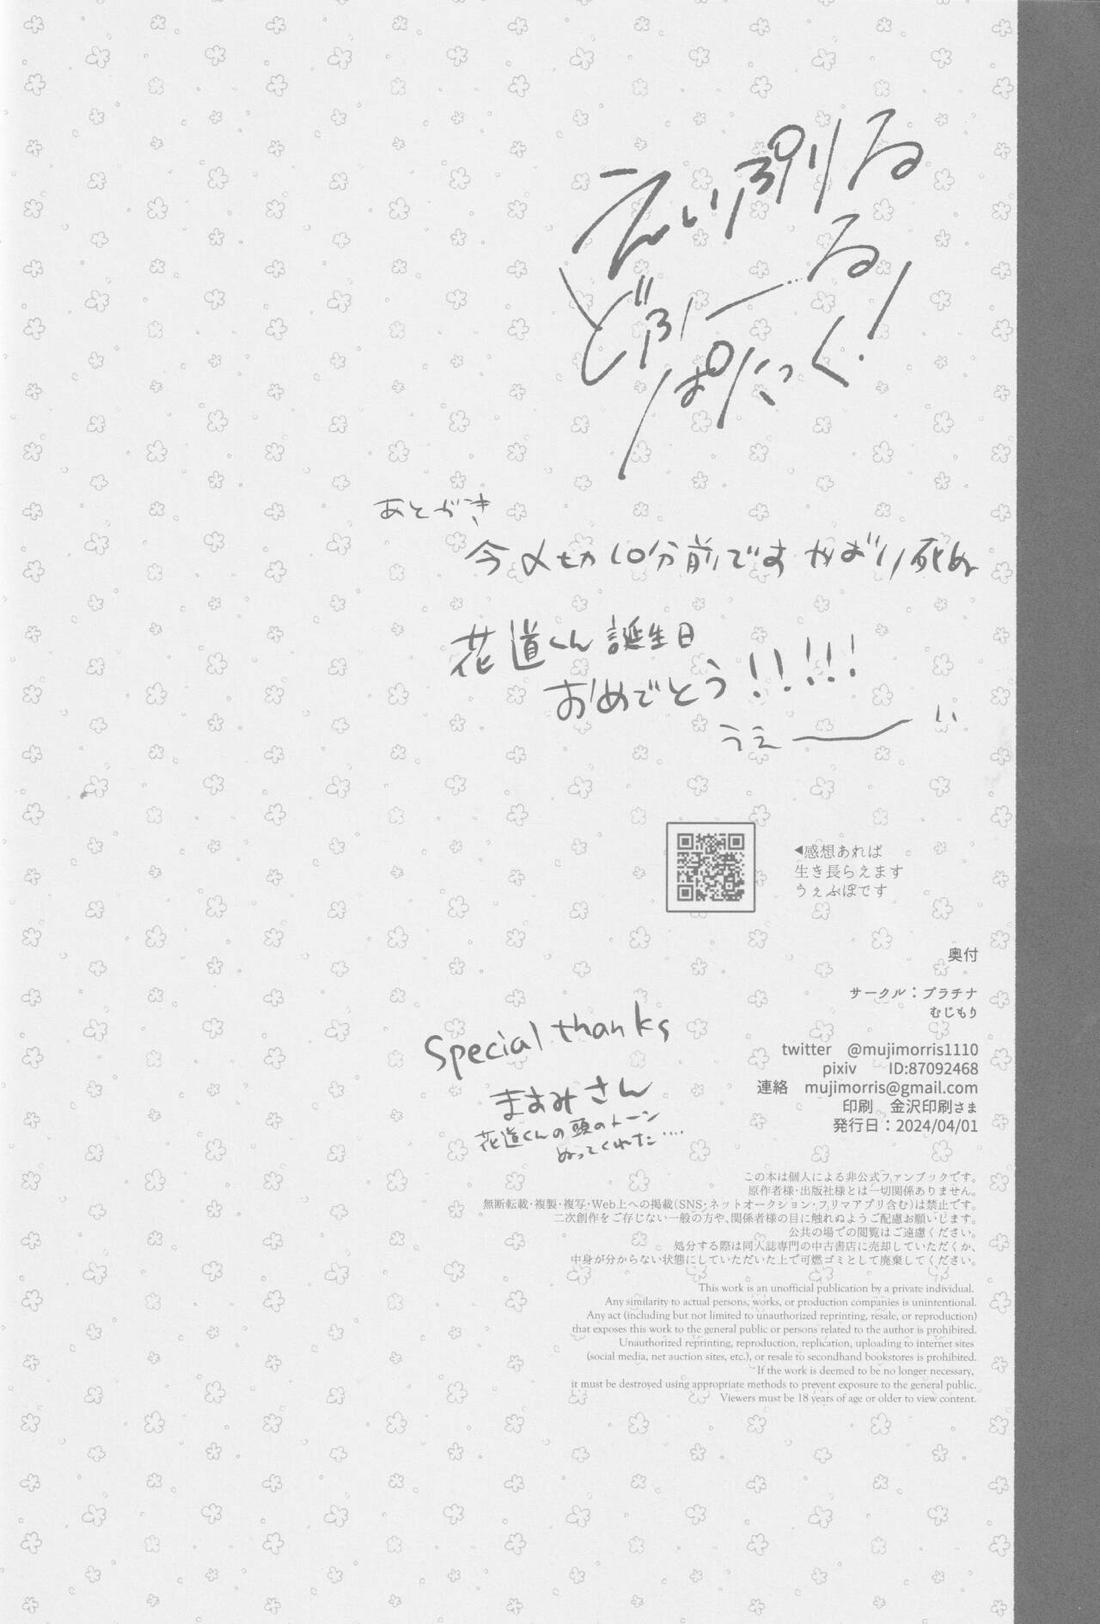 えいぷりる
どぶーる
ぱにっく!
あとがき
今〆切10分前です やばい死ぬ
花道くん誕生日
おめでとう!!!!!
うえーい
◀感想あれば
生き長らえます
うぇぶぼです
奥付
サークル：プラチナ
むじもり
twitter @mujimorris1110
pixiv ID:87092468
連絡 mujimorris@gmail.com
印刷 金沢印刷さま
発行日：2024/04/01
Special thanks
ますみさん
花道くんの頭のトーン
ぬってくれた....
この本は個人による非公式ファンブックです。
原作者様・出版社様とは一切関係ありません。
無断転載・複製・複写・Web上への掲載(SNS・ネットオークション・フリマアプリ含む)は禁止です。
二次創作をご存じない一般の方や、関係者様の目に触れぬようご配慮お願いします。
公共の場での閲覧はご遠慮ください。
処分する際は同人誌専門の中古書店に売却していただくか、
中身が分からない状態にしていただいた上で可燃ゴミとして廃棄してください。
This work is an unofficial publication by a private individual.
Any similarity to actual persons, works, or production companies is unintentional.
Any act (including but not limited to unauthorized reprinting, resale, or reproduction)
that exposes this work to the general public or persons related to the author is prohibited.
Unauthorized reprinting, reproduction, replication, uploading to internet sites
(social media, net auction sites, etc.), or resale to secondhand bookstores is prohibited.
If the work is deemed to be no longer necessary,
it must be destroyed using appropriate methods to prevent exposure to the general public.
Viewers must be 18 years of age or older to view content.